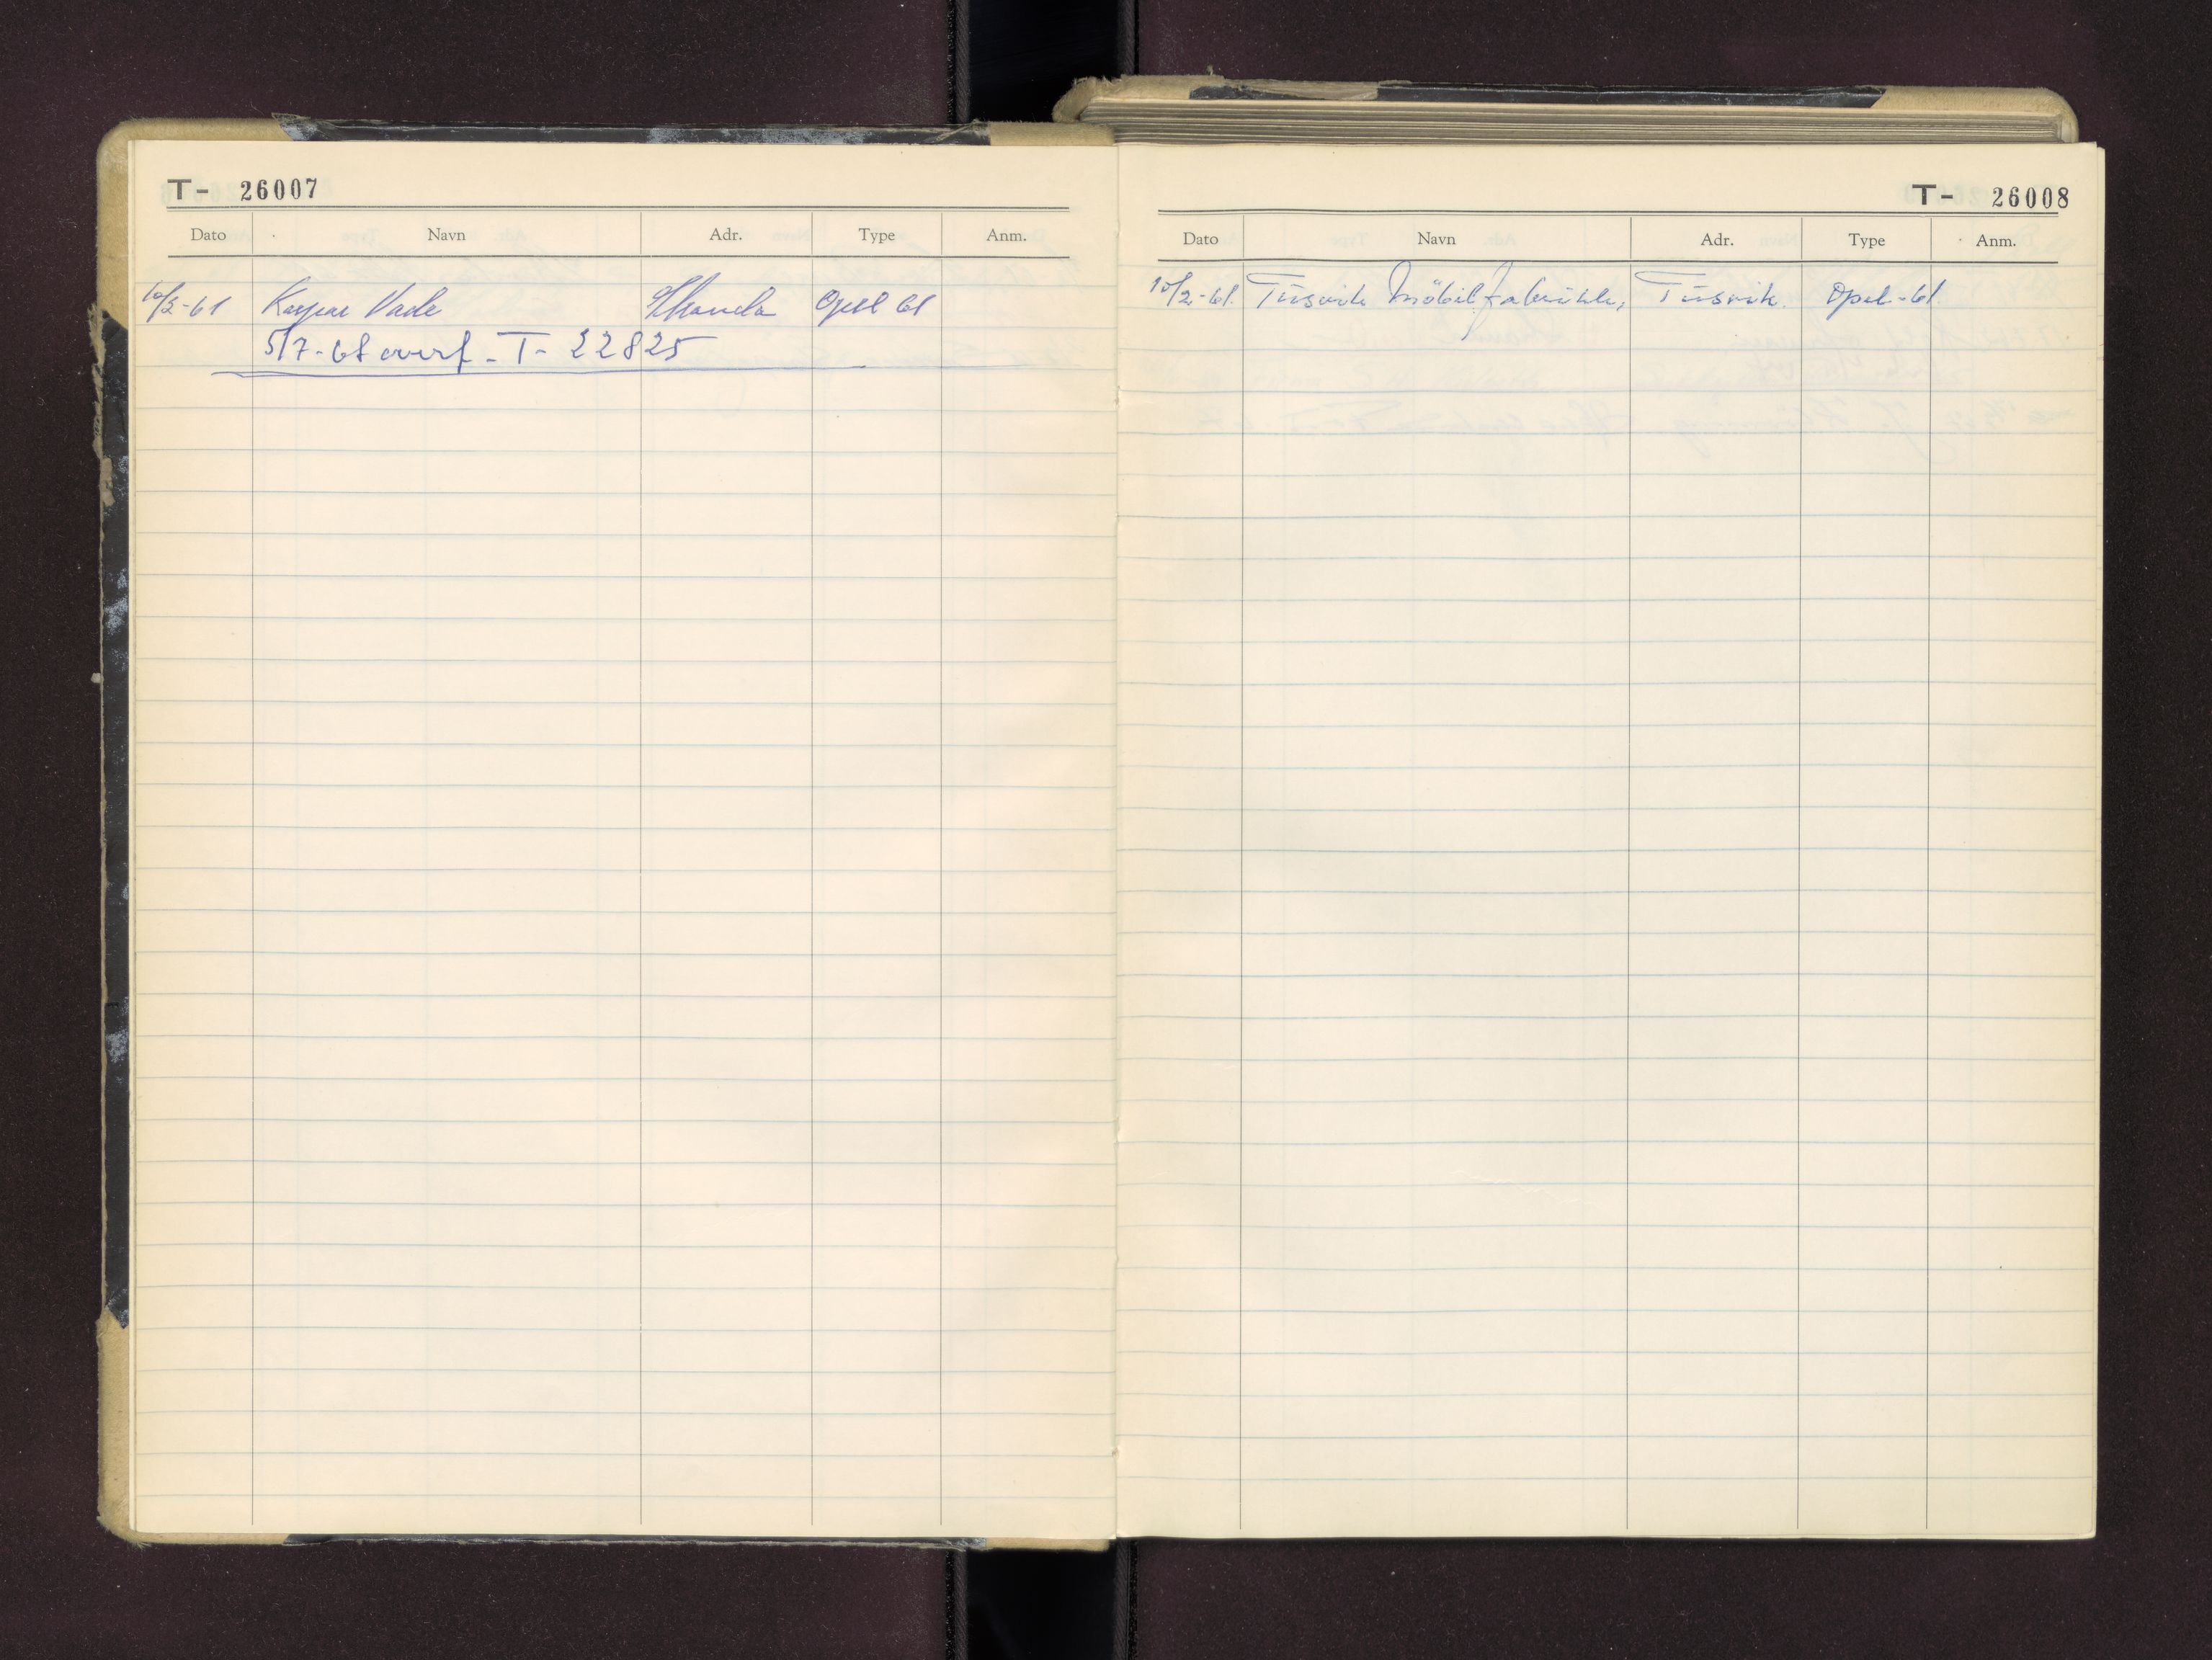 T- 26007
Dato Navn Adr. Type Anm.
10/2-61 Kaspar Vade Stranda Opel 61
5/7-68 overf. T- 22825
T- 26008
Dato Navn Adr. Type Anm.
10/2-61. Tusvik Möbelfabrikk, Tusvik. Opel-61